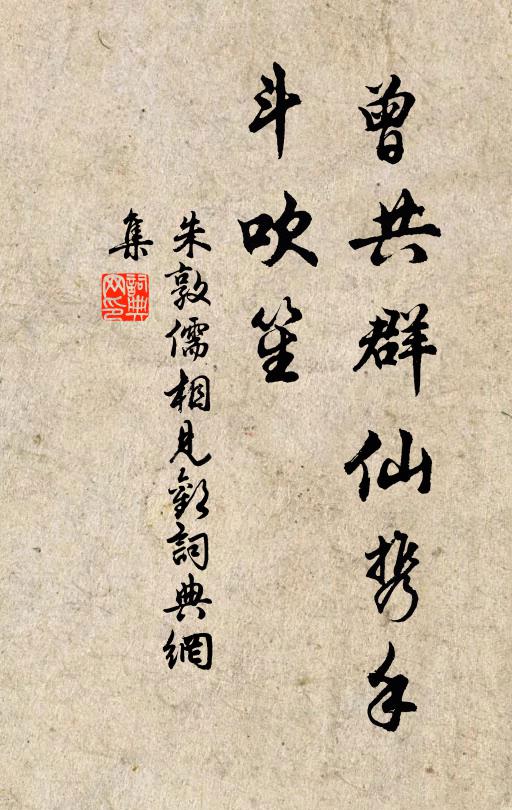 曾共群仙携手
斗吹笙
朱敦儒相見歡詞典網
集
詞典
网印